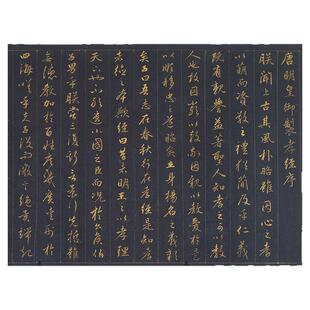 唐明皇御製孝經序
朕聞上古其風朴略雖因心之孝
以萌而資敬之禮猶簡及乎仁義
既有親譽益著聖人知孝之可以教
人也故因嚴以教敬因親以教愛於是
以順移忠之道昭矣立身揚名之義彰
矣子曰吾志在春秋行在孝經是知孝
者德之本歟經曰昔者明王之以孝理
天下也不敢遺小國之臣而況於公侯伯
子男乎朕嘗三復斯言景行先哲雖
無德教加於百姓庶幾廣愛形於
四海嗟乎夫子沒而微言絕異端起